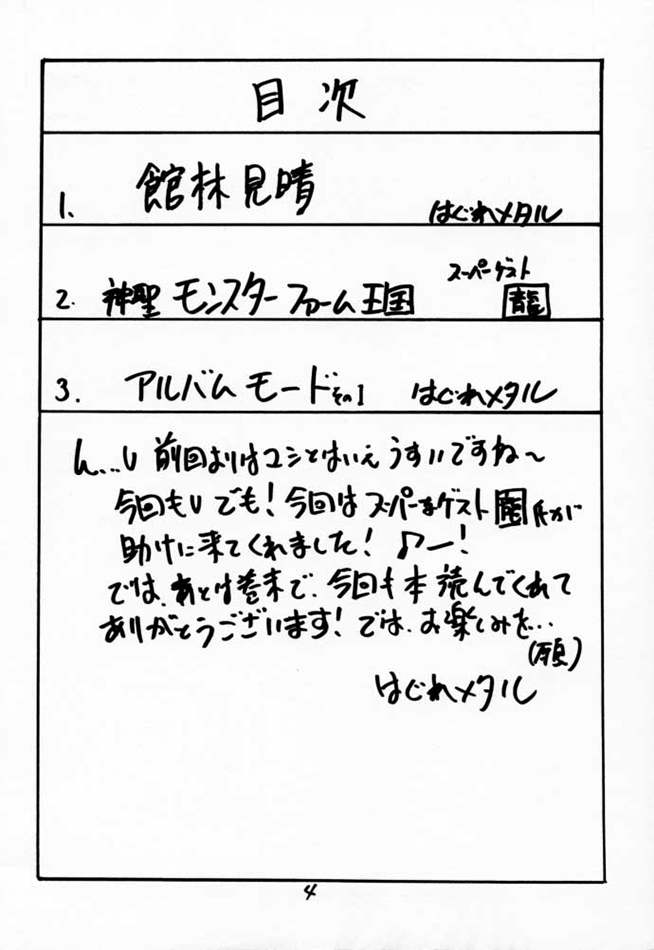 目次
1. 館林見晴 はぐれメタル
2. 神聖モンスターファーム王国 スーパーゲスト 龍
3. アルバムモードその1 はぐれメタル
ん…し 前回よりはマシとはいえうすいですね〜
今回もし でも!今回はスーパーなゲスト 氏が
助けに来てくれました! ♪ー!
では、あとは巻末で、今回も本読んでくれて
ありがとうございます!では、お楽しみを…
(願)
はぐれメタル
4